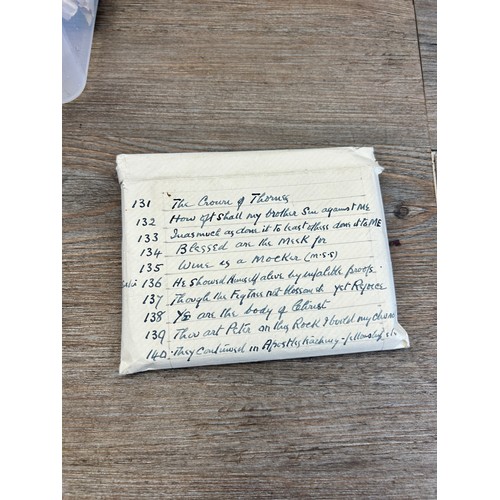 131 The Crown of Thorns
132 How oft shall my brother Sin against ME
133 Inasmuch as done it to least of these done it to ME
134 Blessed are the Meek for
135 Wine is a Mocker (M.S.S)
136 He Showed Himself alive by infalible proofs.
137 Though the Fig Tree not blossom yet Rejoice
138 Ye are the body of Christ
139 Thou art Peter on this Rock I build my
140. They Continued in Apostles teaching - fellowship